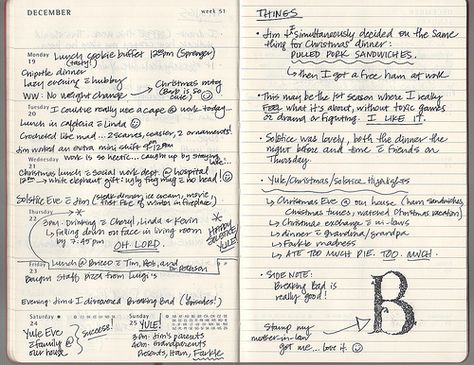 DECEMBER
week 51
Monday
19
Lunch cookie buffet 1230pm (Springer)
(tasty!)
Chipotle dinner
Lazy evening c hubby
WW: No weight change
Christmas mtg
(Barb is so cute)
Tuesday
20
I could really use a cape @ work today...
Lunch in cafeteria c Linda
Crocheted like mad... 2 scarves, coaster, 2 ornaments!
Jim worked an extra mini shift
Wednesday
21
work is so hectic... caught up by staying
Christmas lunch c social work dept. @ hospital
white elephant gift: ugly fug mug & no head!
Solstice Eve c Jim (steak dinner, ice cream, movie,
first fire of winter in fireplace)
Thursday
22
3pm: Drinking c Cheryl, Linda & Kevin
falling down on face in living room
by 7:45pm
OH LORD.
HAPPY SOLSTICE YULE!
Friday
23
Lunch @ Brixx c Tim, Deb, and
Dr. Peterson
Bought staff pizza from Luigi's
Evening: Jim & I discovered Breaking Bad (4 episodes!)
Saturday
24
Yule Eve
c family @
our house
success!
Sunday
25
YULE!
3pm. Jim's parents
6pm. grandparents
Presents, Ham, Farkle
THINGS
• Jim & I simultaneously decided on the same
thing for Christmas dinner:
PULLED PORK SANDWICHES.
then I got a free ham at work
• This may be the 1st season where I really
FEEL what it's about, without toxic games
or drama or fighting. I LIKE IT.
• Solstice was lovely, both the dinner the
night before and time c friends on
Thursday
• Yule/Christmas/Solstice Highlights
Christmas Eve @ our house (ham sandwiches,
Christmas tunes, watched Christmas Vacation)
Christmas exchange c in-laws
dinner c grandma/grandpa
Farkle madness
ATE TOO MUCH PIE. TOO. MUCH.
• SIDE NOTE:
Breaking Bad is
really good!
B
Stamp my
mother-in-law
got me... love it.